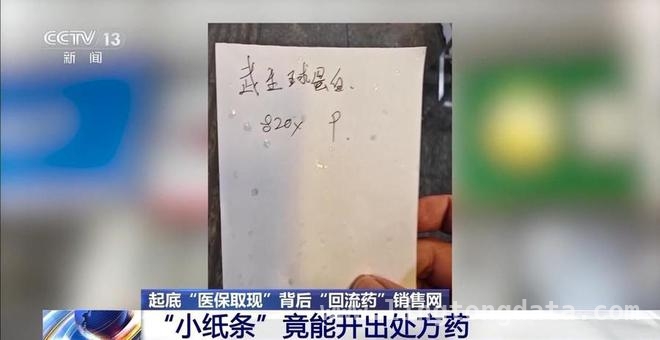 CCTV 13
新闻
武 球蛋白.
820x
起底“医保取现”背后“回流药”销售网
“小纸条”竟能开出处方药